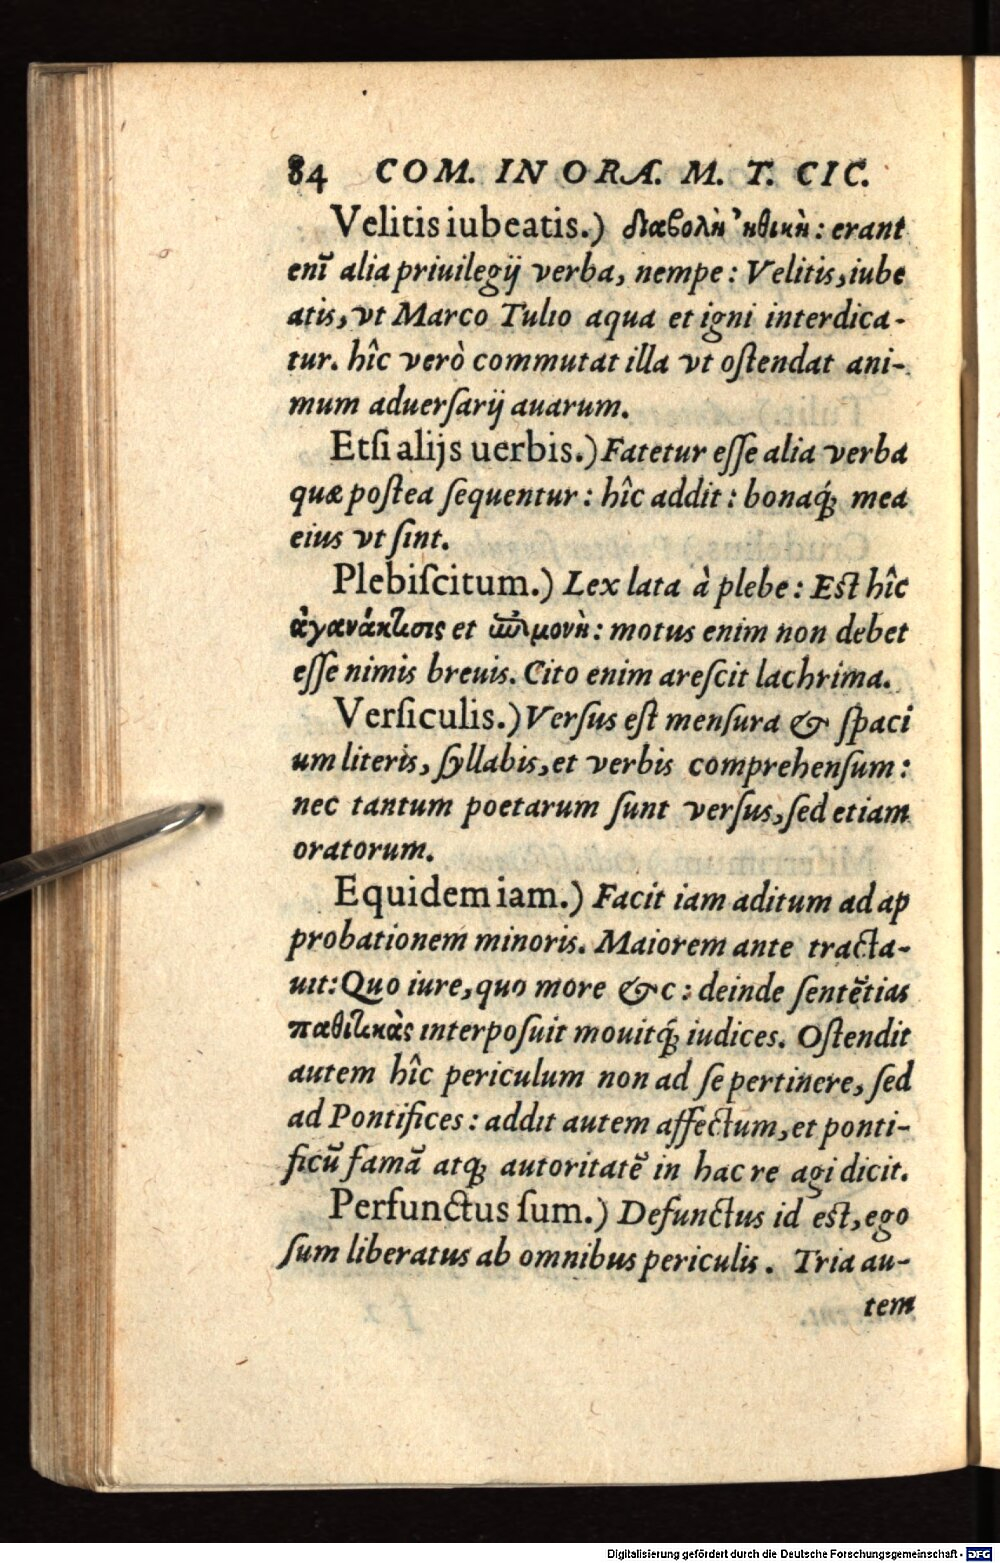 84 COM. IN ORA. M. T. CIC.
Velitis iubeatis.) διαβολὴ ἠθικὴ: erant
enī alia priuilegij verba, nempe: Velitis, iube
atis, vt Marco Tulio aqua et igni interdica-
tur. hîc verò commutat illa vt ostendat ani-
mum aduersarij auarum.
Etsi alijs uerbis.) Fatetur esse alia verba
quæ postea sequentur: hîc addit: bonaq́; mea
eius vt sint.
Plebiscitum.) Lex lata à plebe: Est hîc
ἀγανάκτισις et ἐπιμονὴ: motus enim non debet
esse nimis breuis. Cito enim arescit lachrima.
Versiculis.) Versus est mensura & spaci
um literis, syllabis, et verbis comprehensum:
nec tantum poetarum sunt versus, sed etiam
oratorum.
Equidem iam.) Facit iam aditum ad ap
probationem minoris. Maiorem ante tracta-
uit: Quo iure, quo more &c: deinde sentētias
παθιτικὰς interposuit mouitq́; iudices. Ostendit
autem hîc periculum non ad se pertinere, sed
ad Pontifices: addit autem affectum, et ponti-
ficū famā atq; autoritatē in hac re agi dicit.
Perfunctus sum.) Defunctus id est, ego
sum liberatus ab omnibus periculis. Tria au-
tem
Digitalisierung gefördert durch die Deutsche Forschungsgemeinschaft - DFG